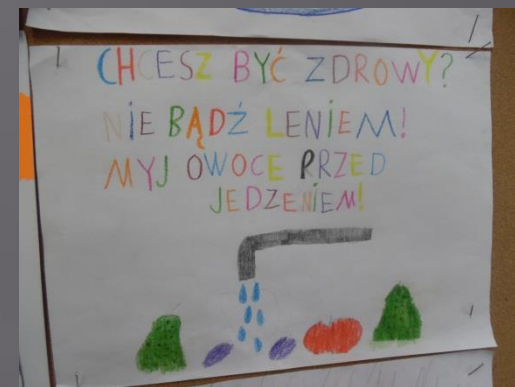 CHCESZ BYĆ ZDROWY?
NIE BĄDŹ LENIEM!
MYJ OWOCE PRZED
JEDZENIEM!